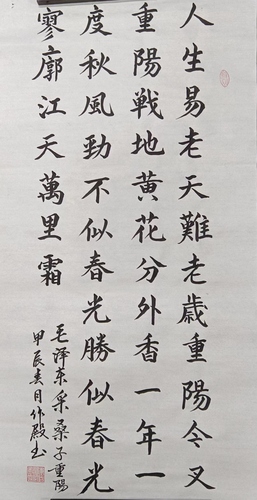 人生易老天難老歲重陽今又
重陽戦地黄花分外香一年一
度秋風勁不似春光勝似春光
寥廓江天萬里霜
毛泽东采桑子重陽
甲辰春月作殿玉